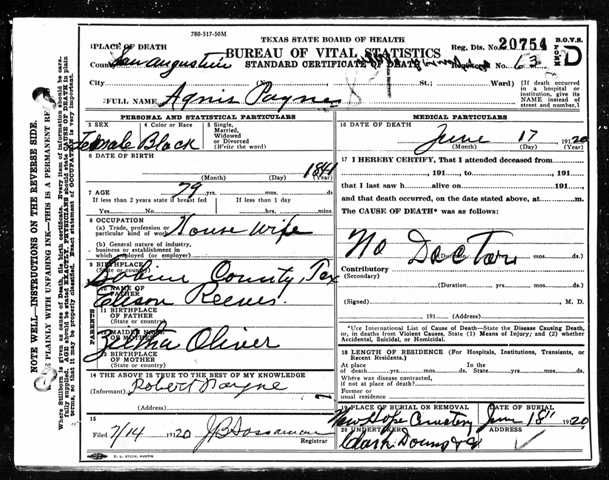 780-517-50M
TEXAS STATE BOARD OF HEALTH
BUREAU OF VITAL STATISTICS
STANDARD CERTIFICATE OF DEATH
Reg. Dis. No. 20754
B.O.V.S.
FORM D
1 PLACE OF DEATH
County San Augustine
No. 63
City (No. St.; Ward)
[If death occurred in a hospital or institution, give its NAME instead of street and number.]
2 FULL NAME Agnis Payne
PERSONAL AND STATISTICAL PARTICULARS
3 SEX
4 Color or Race
5 Single, Married, Widowed or Divorced (Write the word)
Female Black
6 DATE OF BIRTH
1841
(Month) (Day) (Year)
7 AGE 79 yrs. mos. ds.
If less than 2 years state if breast fed
If less than 1 day
Yes No hrs. mins.
8 OCCUPATION
(a) Trade, profession or particular kind of work House Wife
(b) General nature of industry, business or establishment in which employed (or employer)
9 BIRTHPLACE (State or country) Sabine County, Tex
PARENTS
10 NAME OF FATHER Edison Reeves.
11 BIRTHPLACE OF FATHER (State or country)
12 MAIDEN NAME OF MOTHER Zeltha Oliver
13 BIRTHPLACE OF MOTHER (State or country)
14 THE ABOVE IS TRUE TO THE BEST OF MY KNOWLEDGE
(Informant) Robert Payne
(Address)
15
Filed 7/14 1920 J B Sossaman
Registrar
MEDICAL PARTICULARS
16 DATE OF DEATH
June 17 1920
(Month) (Day) (Year)
17 I HEREBY CERTIFY, That I attended deceased from
191 , to 191
that I last saw h alive on 191
and that death occurred, on the date stated above, at m.
The CAUSE OF DEATH* was as follows:
No Doctor
(Duration) yrs. mos. ds.
Contributory (Secondary)
(Duration) yrs. mos. ds.
(Signed) M. D.
191 (Address)
*Use International List of Cause of Death—State the Disease Causing Death, or, in deaths from Violent Causes, State (1) Means of Injury; and (2) whether Accidental, Suicidal, or Homicidal.
18 LENGTH OF RESIDENCE (For Hospitals, Institutions, Transients, or Recent Residents.)
At place of death yrs. mos. ds. State yrs. mos. ds.
Where was disease contracted, if not at place of death?
Former or usual residence
19 PLACE OF BURIAL OR REMOVAL
DATE OF BURIAL
New Hope Cemetery June 18" 1920
20 UNDERTAKER
ADDRESS
NOTE WELL—INSTRUCTIONS ON THE REVERSE SIDE.